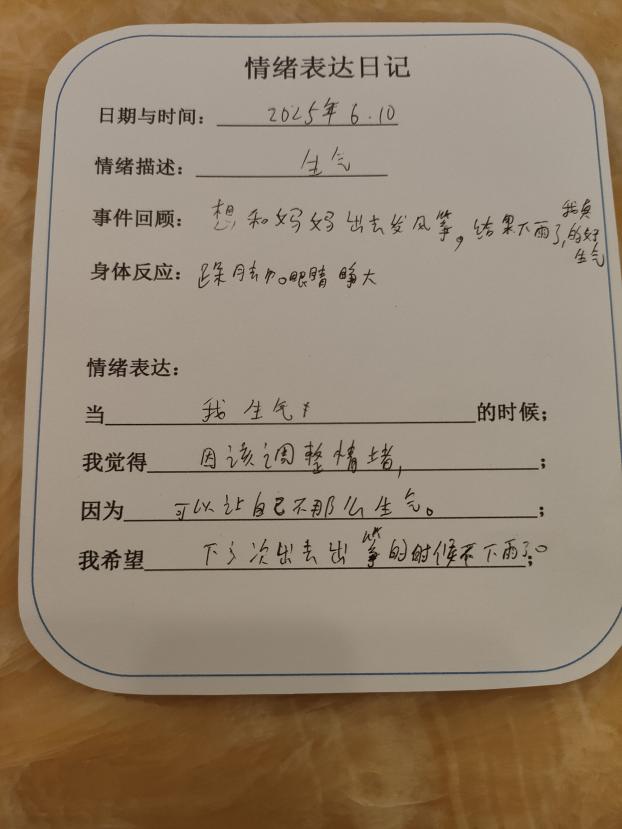 情绪表达日记
日期与时间：2025年6.10
情绪描述：生气
事件回顾：想和妈妈出去发风筝，结果下雨了，我真的好生气
身体反应：跺脚。眼睛睁大
情绪表达：
当我生气的时候；
我觉得因该调整情堵，；
因为可以让自己不那么生气。；
我希望下次出去出筝的时候不下雨了。；